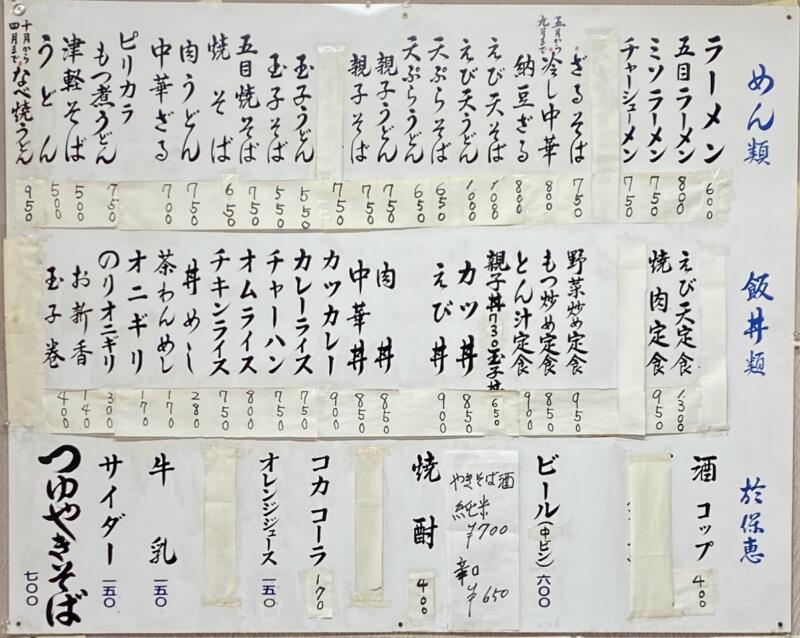 めん類
ラーメン 600
五目ラーメン 800
ミソラーメン 750
チャーシューメン 750
ざるそば 750
五月から九月まで 冷し中華 800
納豆ざる 800
えび天そば 1000
えび天うどん 1000
天ぷらそば 650
天ぷらうどん 650
親子うどん 750
親子そば 750
750
玉子うどん 550
玉子そば 550
五目焼そば 750
焼そば 650
肉うどん 750
中華ざる 700
ピリカラもつ煮うどん 750
津軽そば 500
うどん 500
十月から四月まで なべ焼うどん 950
飯丼類
えび天定食 1300
焼肉定食 950
野菜炒め定食 950
もつ炒め定食 850
とん汁定食 900
親子丼730玉子丼 650
カツ丼 850
えび丼 900
肉丼 850
中華丼 850
カツカレー 900
カレーライス 750
チャーハン 750
オムライス 800
チキンライス 750
丼めし 280
茶わんめし 170
オニギリ 170
のりオニギリ 300
お新香 140
玉子巻 400
於保恵
酒コップ 400
ビール(中ビン) 六〇〇
やきそば酒
純米
¥700
辛口
¥650
焼酎 400
コカコーラ 170
オレンジジュース 一五〇
牛乳 一五〇
サイダー 一五〇
つゆやきそば 七〇〇